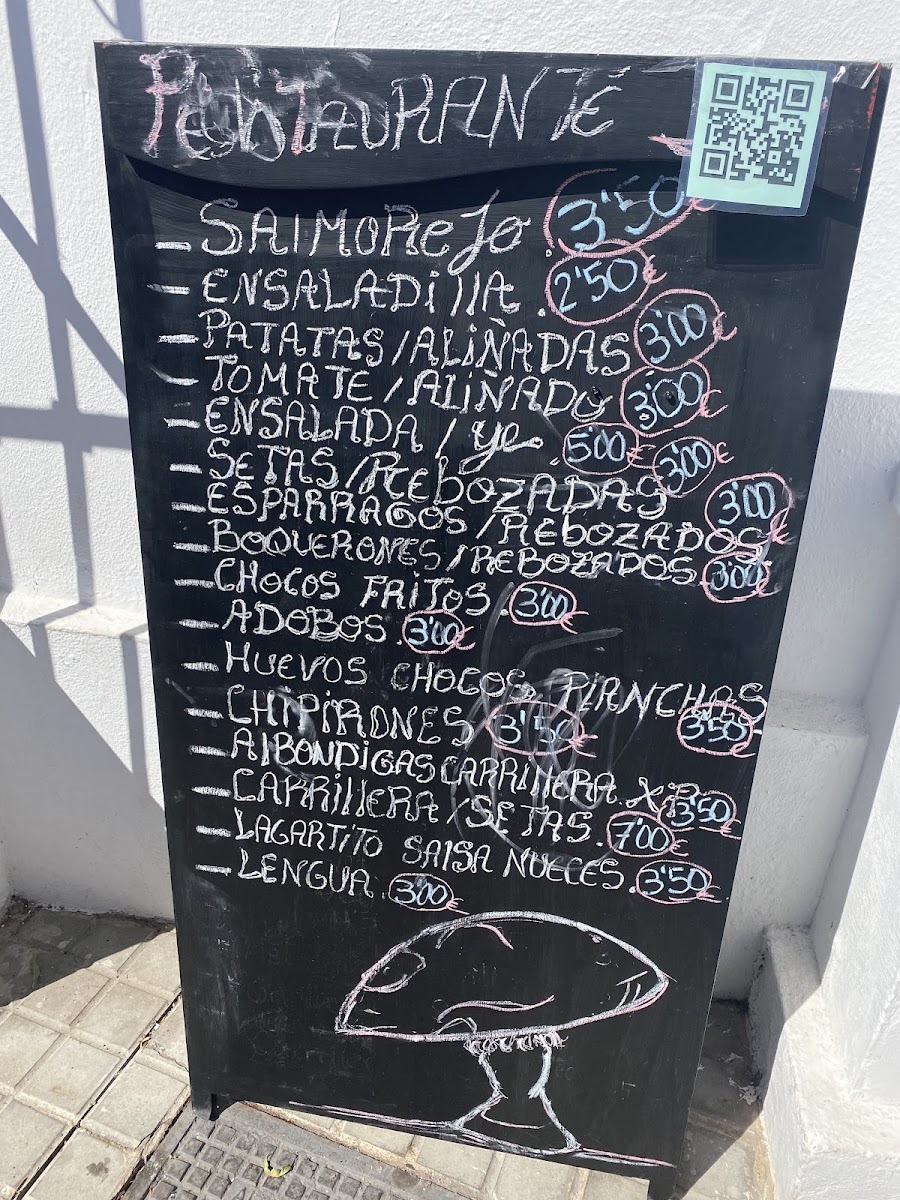 RESTAURANTE
- SAlMOReJo. 3'50
- ENSALADillA. 2'50€
- PATATAS/ALIÑADAS 3'00€
- TOMATE/ALIÑADO 3'00€
- ENSALADA / ye. 5'00€
- SETAS/REBOZADAS 3'00€
- ESPARRAGOS/REBOZADOS 3'00€
- BOQUERONES/REBOZADOS. 3'00€
- CHOCOS FRITOS. 3'00€
- ADOBOS. 3'00€
- HUEVOS CHOCOS PlANCHAS 3'50€
- CHIPIRONES 3'50€
- AlBONDiGAS CARRillERA XP. 3'50€
- CARRillERA/SETAS. 7'00€
- LAGARTITO SAlSA NUECES. 3'50€
- LENGUA. 3'00€